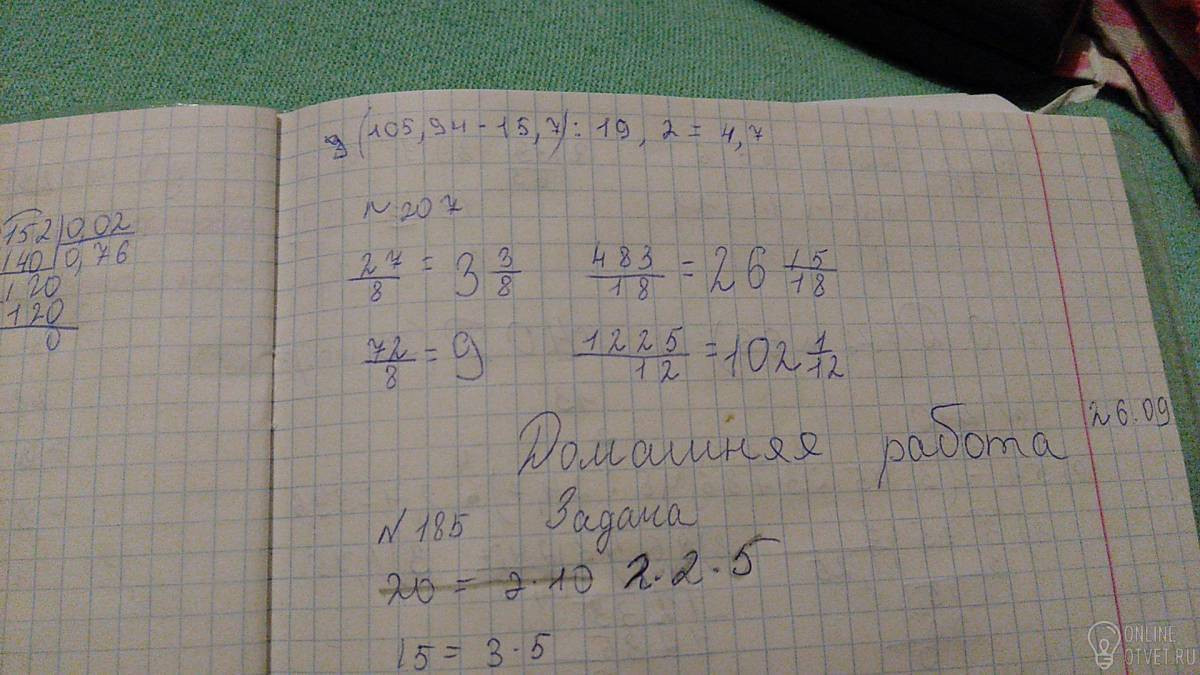 152 0,02
140 0,76
120
120
0
g (105,94 - 15,7) : 19, 2 = 4,7
N 207
27/8 = 3 3/8 483/18 = 26 15/18
72/8 = 9 1225/12 = 102 1/12
26.09
Домашняя работа
N 185 Задача
20 = 2·10 2·2·5
15 = 3·5
ONLINE
OTVET.RU